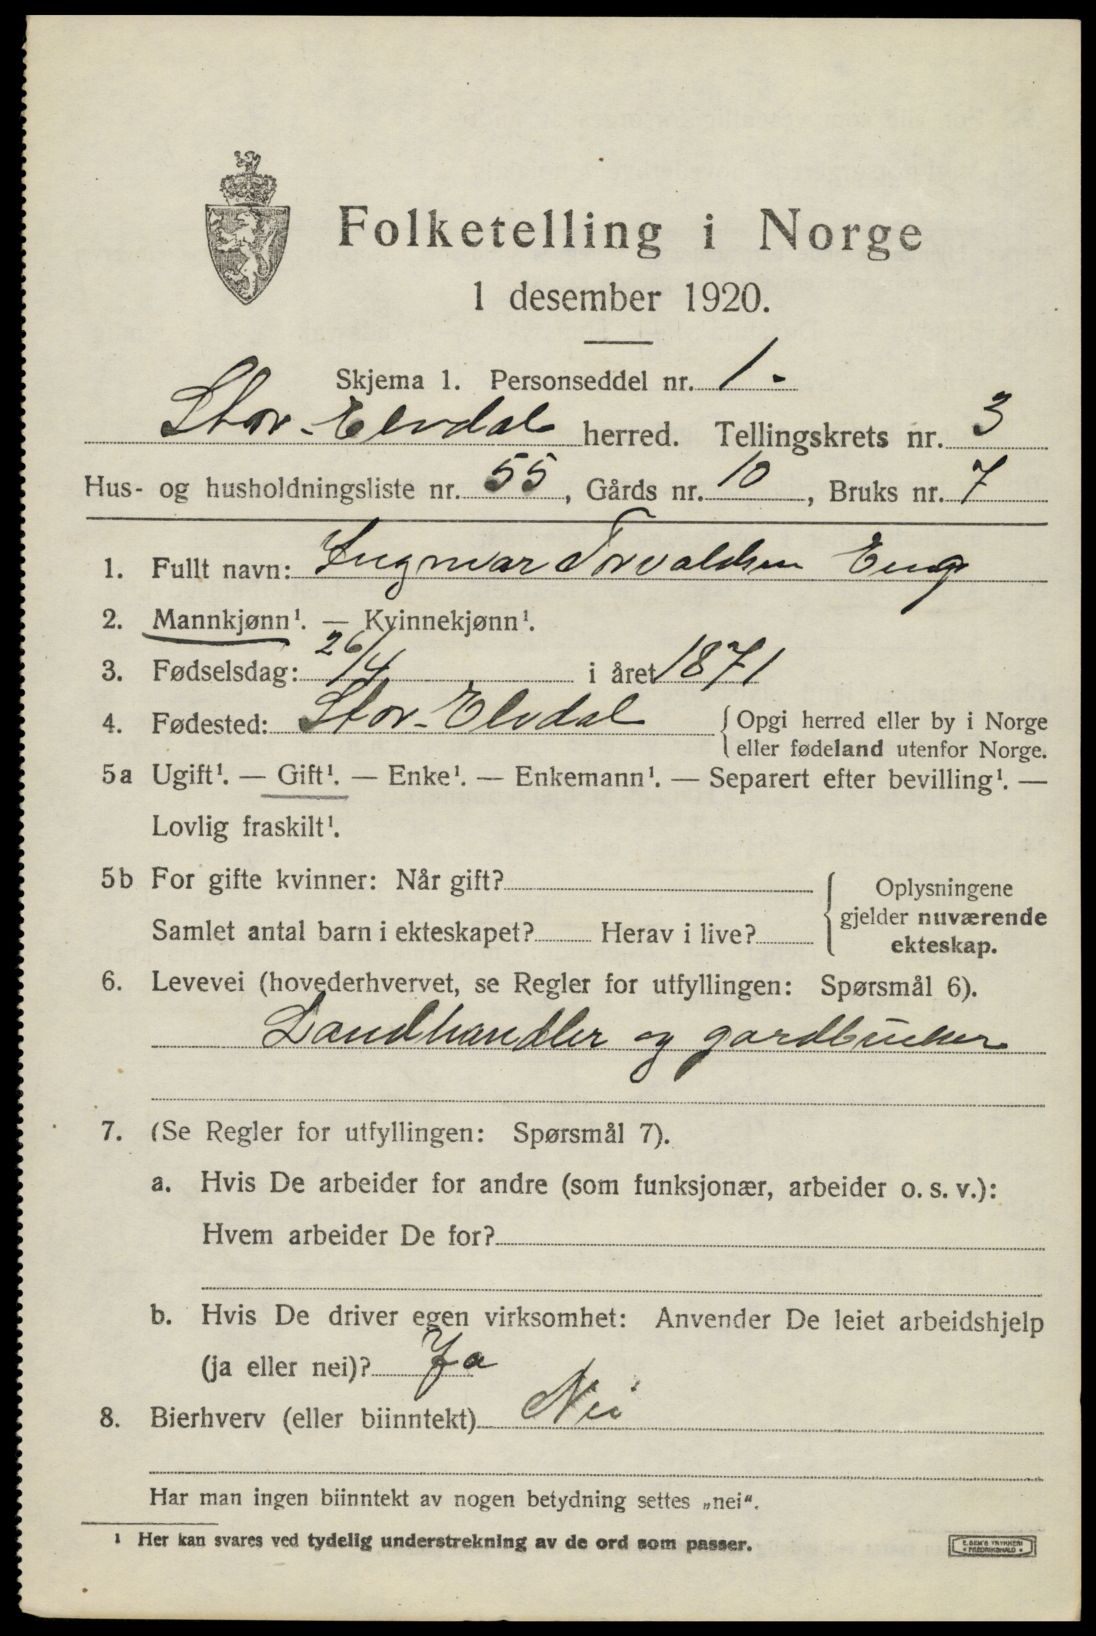 Folketelling i Norge
1 desember 1920.
Skjema 1. Personseddel nr. 1.
Stor-Elvdal herred. Tellingskrets nr. 3
Hus- og husholdningsliste nr. 55, Gårds nr. 10, Bruks nr. 7
1. Fullt navn: Ingmar Torvaldsen Eng
2. Mannkjønn¹. — Kvinnekjønn¹.
3. Fødselsdag: 26/4 i året 1871
4. Fødested: Stor-Elvdal { Opgi herred eller by i Norge
eller fødeland utenfor Norge.
5a Ugift¹. — Gift¹. — Enke¹. — Enkemann¹. — Separert efter bevilling¹. —
Lovlig fraskilt¹.
5b For gifte kvinner: Når gift?
Samlet antal barn i ekteskapet? Herav i live?
{ Oplysningene
gjelder nuværende
ekteskap.
6. Levevei (hovederhvervet, se Regler for utfyllingen: Spørsmål 6).
Landhandler og gardbruker
7. (Se Regler for utfyllingen: Spørsmål 7).
a. Hvis De arbeider for andre (som funksjonær, arbeider o. s. v.):
Hvem arbeider De for?
b. Hvis De driver egen virksomhet: Anvender De leiet arbeidshjelp
(ja eller nei)? Ja
8. Bierhverv (eller biinntekt) Nei
Har man ingen biinntekt av nogen betydning settes „nei“.
¹ Her kan svares ved tydelig understrekning av de ord som passer.
E. SEM'S TRYKKERI
FREDRIKSHALD